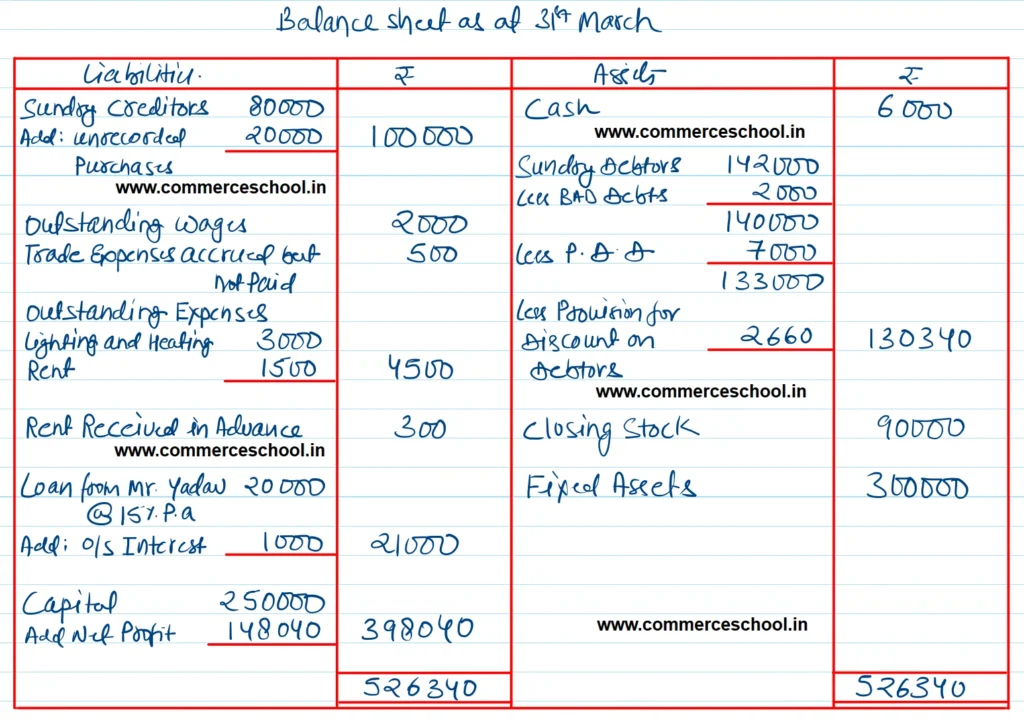 Balance sheet as at 31st March
Liabilities. ₹ Assets ₹
Sundry Creditors 80000 Cash 6000
Add: unrecorded 20000 100000 www.commerceschool.in
Purchases Sundry Debtors 142000
www.commerceschool.in Less BAD Debts 2000
Outstanding wages 2000 140000
Trade Expenses accrued but 500 Less P.D.D 7000
Not Paid 133000
Outstanding Expenses Less Provision for
Lighting and Heating 3000 Discount on 2660 130340
Rent 1500 4500 Debtors
www.commerceschool.in
Rent Received in Advance 300 Closing Stock 90000
www.commerceschool.in
Loan from Mr. Yadav 20000 Fixed Assets 300000
@ 15%.P.a
Add: O/S Interest 1000 21000
Capital 250000
Add Net Profit 148040 398040 www.commerceschool.in
526340 526340